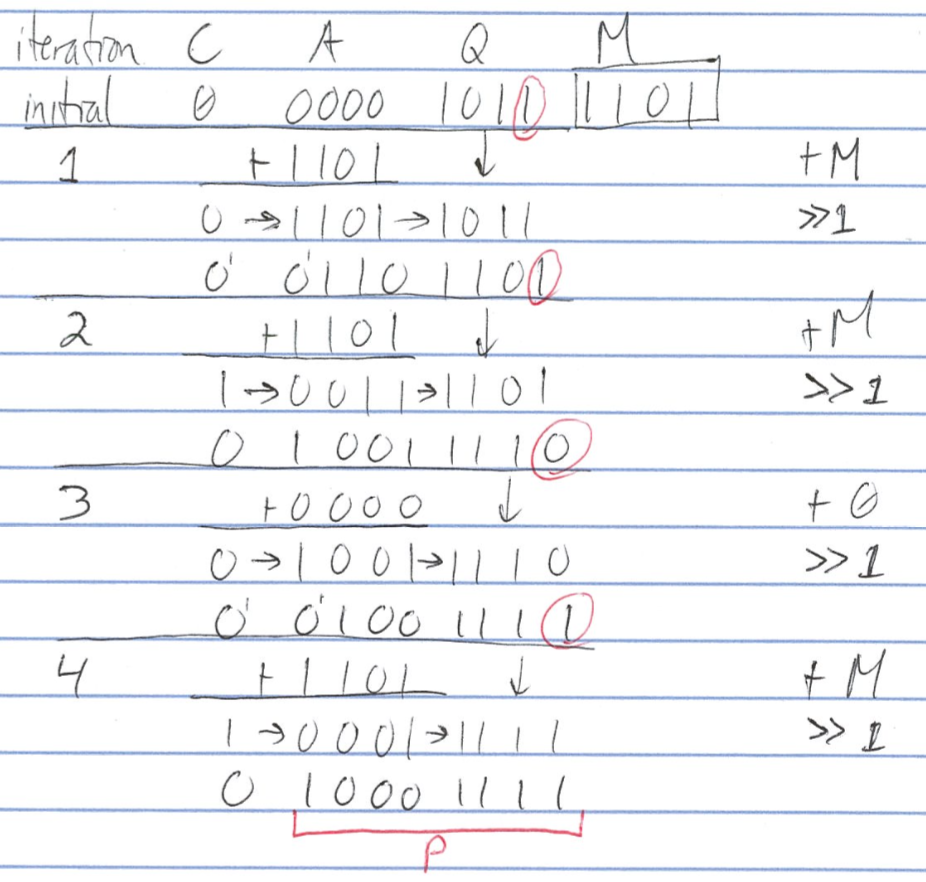 iteration C A Q M
initial 0 0000 1011 1101
1 +1101 ↓ +M
0→1101→1011 >>1
0' 0'110 1101
2 +1101 ↓ +M
1→0011→1101 >>1
0 1001 1110
3 +0000 ↓ +0
0→1001→1110 >>1
0' 0'100 1111
4 +1101 ↓ +M
1→0001→1111 >>1
0 1000 1111
P